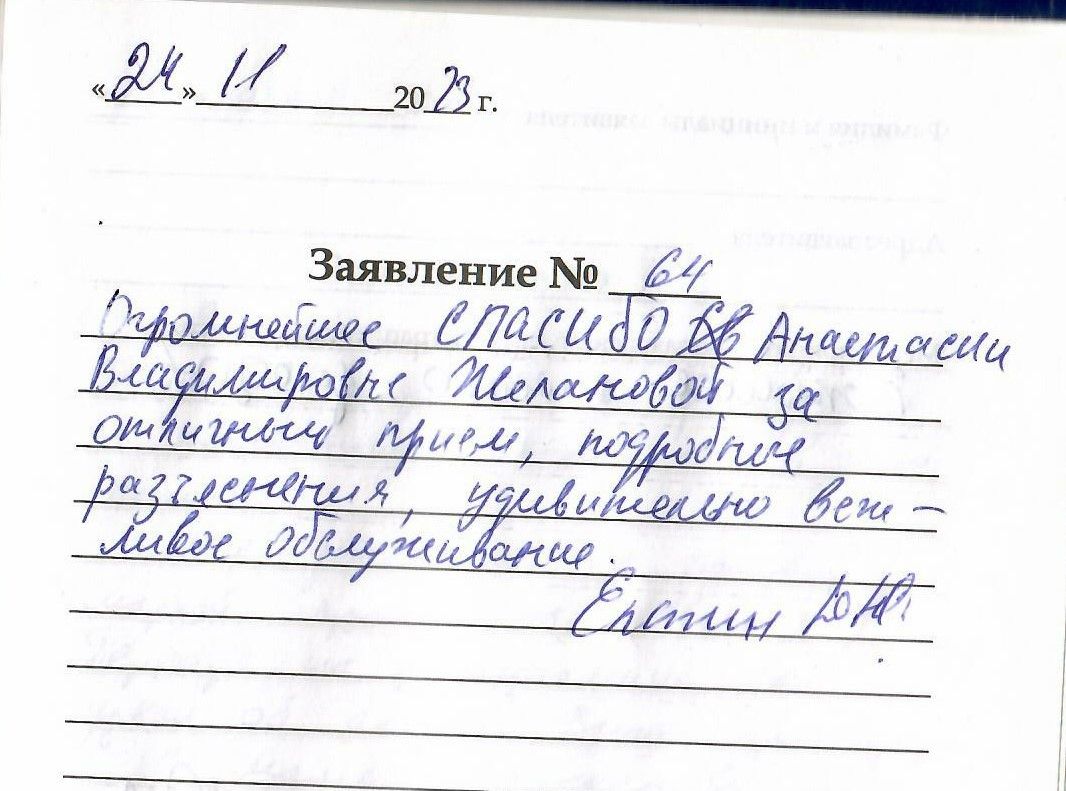 «24» 11 2023 г.
Заявление № 64
Огромнейшее СПАСИБО Анастасии
Владимировне Желановой за
отличный прием, подробные
разъяснения, удивительно веж-
ливое обслуживание.